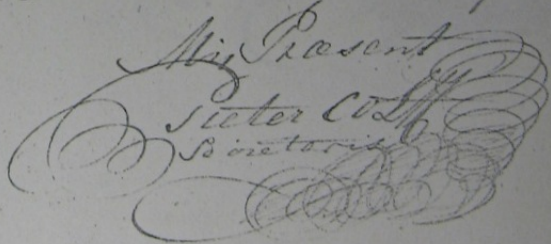 Mij Present
Pieter
Secretaris